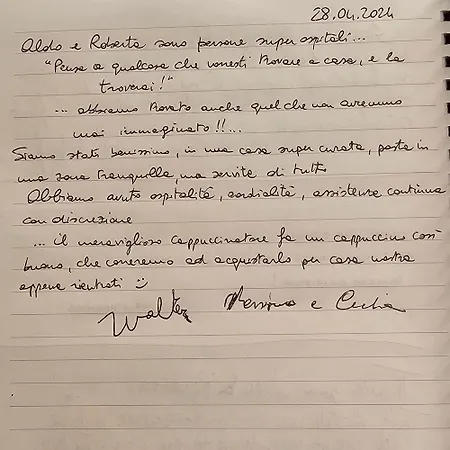 28.04.2024
Aldo e Roberta sono persone super ospitali...
"Pensa a qualcosa che vorresti trovare a casa, e la
troverai!"
... abbiamo trovato anche quel che non avremmo
mai immaginato!!...
Siamo stati benissimo, in una casa super curata, posta in
una zona tranquilla, ma servita di tutto
Abbiamo avuto ospitalità, cordialità, assistenza continua
con discrezione
... il meraviglioso cappuccinatore fa un cappuccino così
buono, che correremo ad acquistarlo per casa nostra
appena rientrati ☺
Walter e Cecilia